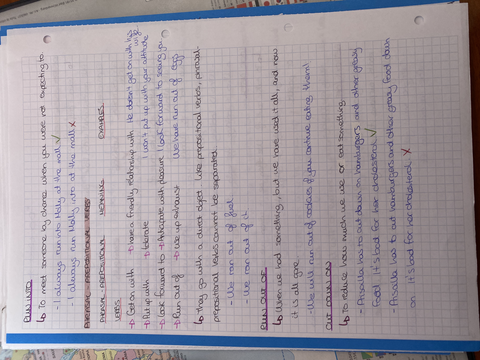 RUN INTO
↳ To meet someone by chance when you were not expecting to
- I always run into Molly at the mall ✓
- I always run Molly into at the mall ✗
PHRASAL-PREPOSITIONAL VERBS
PHRASAL-PREPOSITIONAL VERBS MEANING EXAMPLES
Get on with → have a friendly relationship with He doesn't get on with his wife
Put up with → tolerate I won't put up with your attitude
Look forward to → Anticipate with pleasure I look forward to seeing you
Run out of → Use up, exhaust We have run out of eggs
↳ They go with a direct object. Like prepositional verbs, phrasal
prepositional verbs cannot be separated.
- We ran out of fuel
- We ran out of it.
RUN OUT OF
↳ When we had something, but we have used it all, and now
it is all gone
- We will run out of cookies if you continue eating them!
CUT DOWN ON
↳ To reduce how much we use or eat something.
- Priscilla has to cut down on hamburgers and other greasy
food. It's bad for her cholesterol ✓
- Priscilla has to cut hamburgers and other greasy food down
on. It's bad for her cholesterol ✗